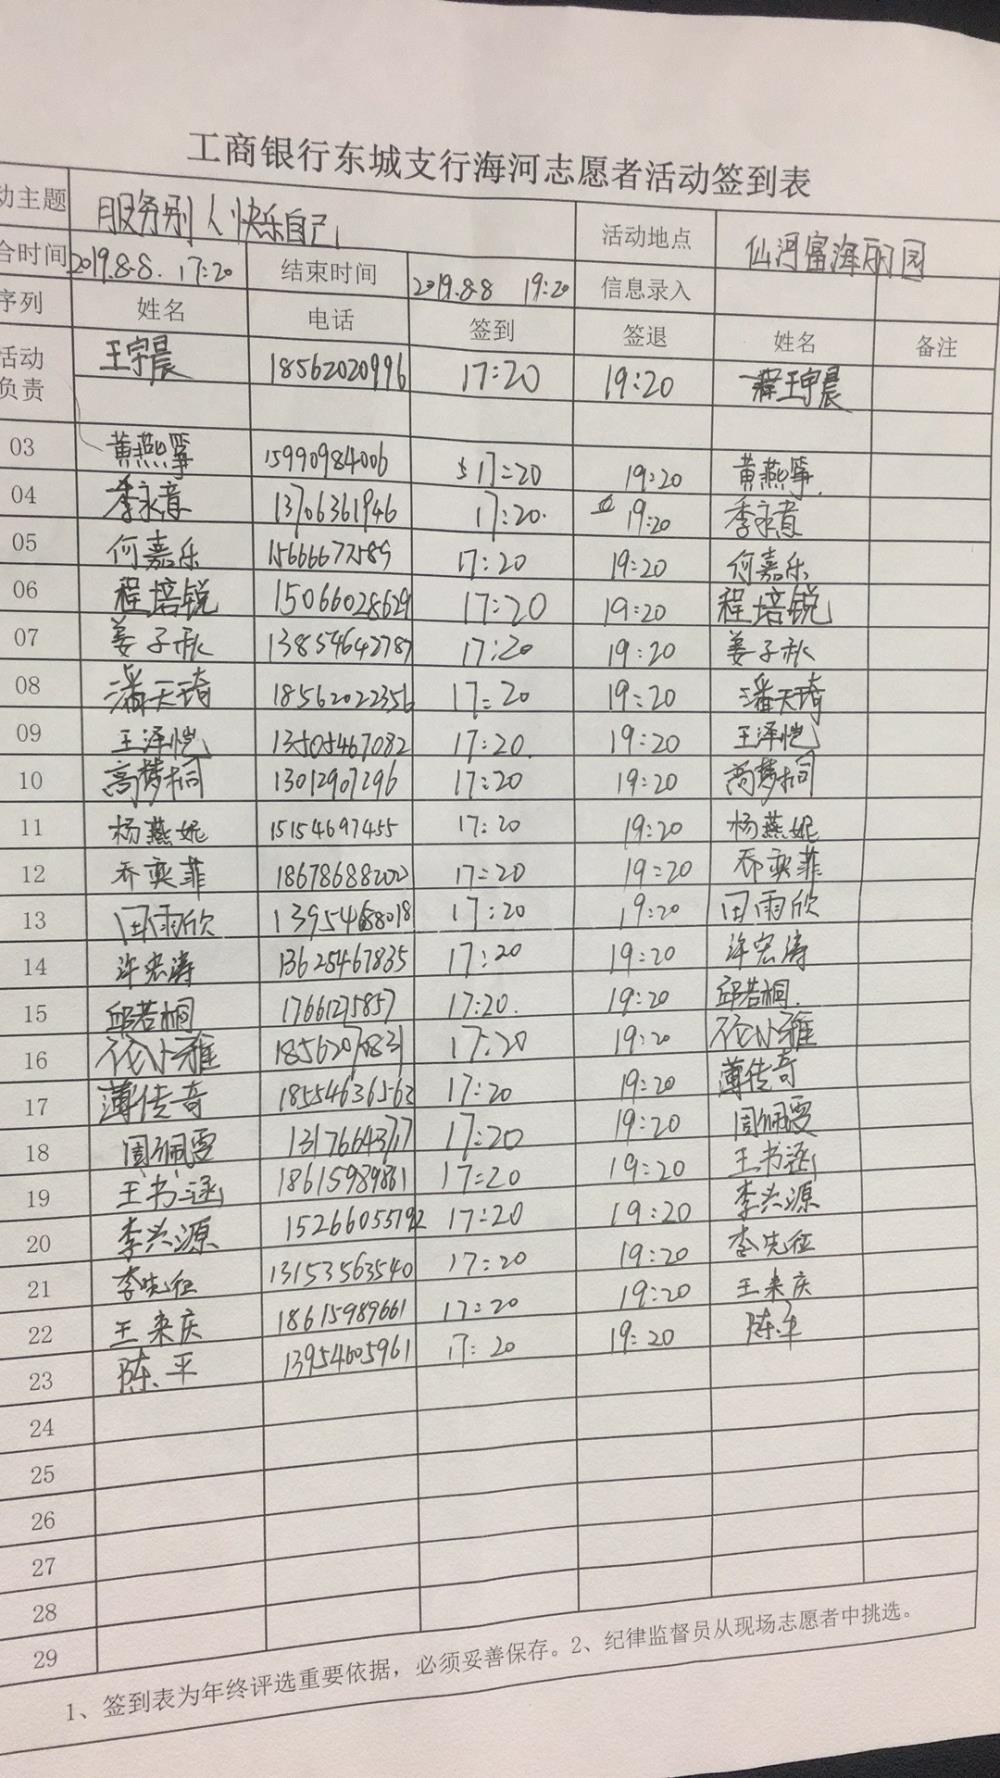 工商银行东城支行海河志愿者活动签到表
动主题 服务别人 快乐自己 活动地点 仙河富海丽园
合时间 2019.8.8. 17:20 结束时间 2019.8.8 19:20 信息录入
序列 姓名 电话 签到 签退 姓名 备注
活动负责 王宇晨 18562020996 17:20 19:20 王宇晨
03 黄燕 15990984006 17:20 19:20 黄燕
04 季永意 13706361946 17:20. 19:20 季永意
05 何嘉乐 15666677589 17:20 19:20 何嘉乐
06 程培锐 15066028629 17:20 19:20 程培锐
07 姜子秋 13854642787 17:20 19:20 姜子秋
08 潘天琦 18562022356 17:20 19:20 潘天琦
09 王泽恺 13505467082 17:20. 19:20 王泽恺
10 高梦桐 13012907296 17:20 19:20 高梦桐
11 杨燕妮 15154697455 17:20 19:20 杨燕妮
12 乔奕菲 18678688202 17:20 19:20 乔奕菲
13 田雨欣 13954688018 17:20 19:20 田雨欣
14 许宏涛 13625467835 17:20 19:20 许宏涛
15 邱若桐 1766125857 17:20. 19:20 邱若桐.
16 小雅 17:20 19:20 小雅
17 薄传奇 18554636563 17:20 19:20 薄传奇
18 周佩雯 17:20 19:20 周佩雯
19 王书涵 18615989861 17:20 19:20 王书涵
20 李兴源 15266055792 17:20 19:20 李兴源
21 李先征 13153563540 17:20 19:20 李先征
22 王来庆 18615989661 17:20 19:20 王来庆
23 陈平 13954605961 17:20 19:20 陈平
24
25
26
27
28
29
1、签到表为年终评选重要依据，必须妥善保存。2、纪律监督员从现场志愿者中挑选。